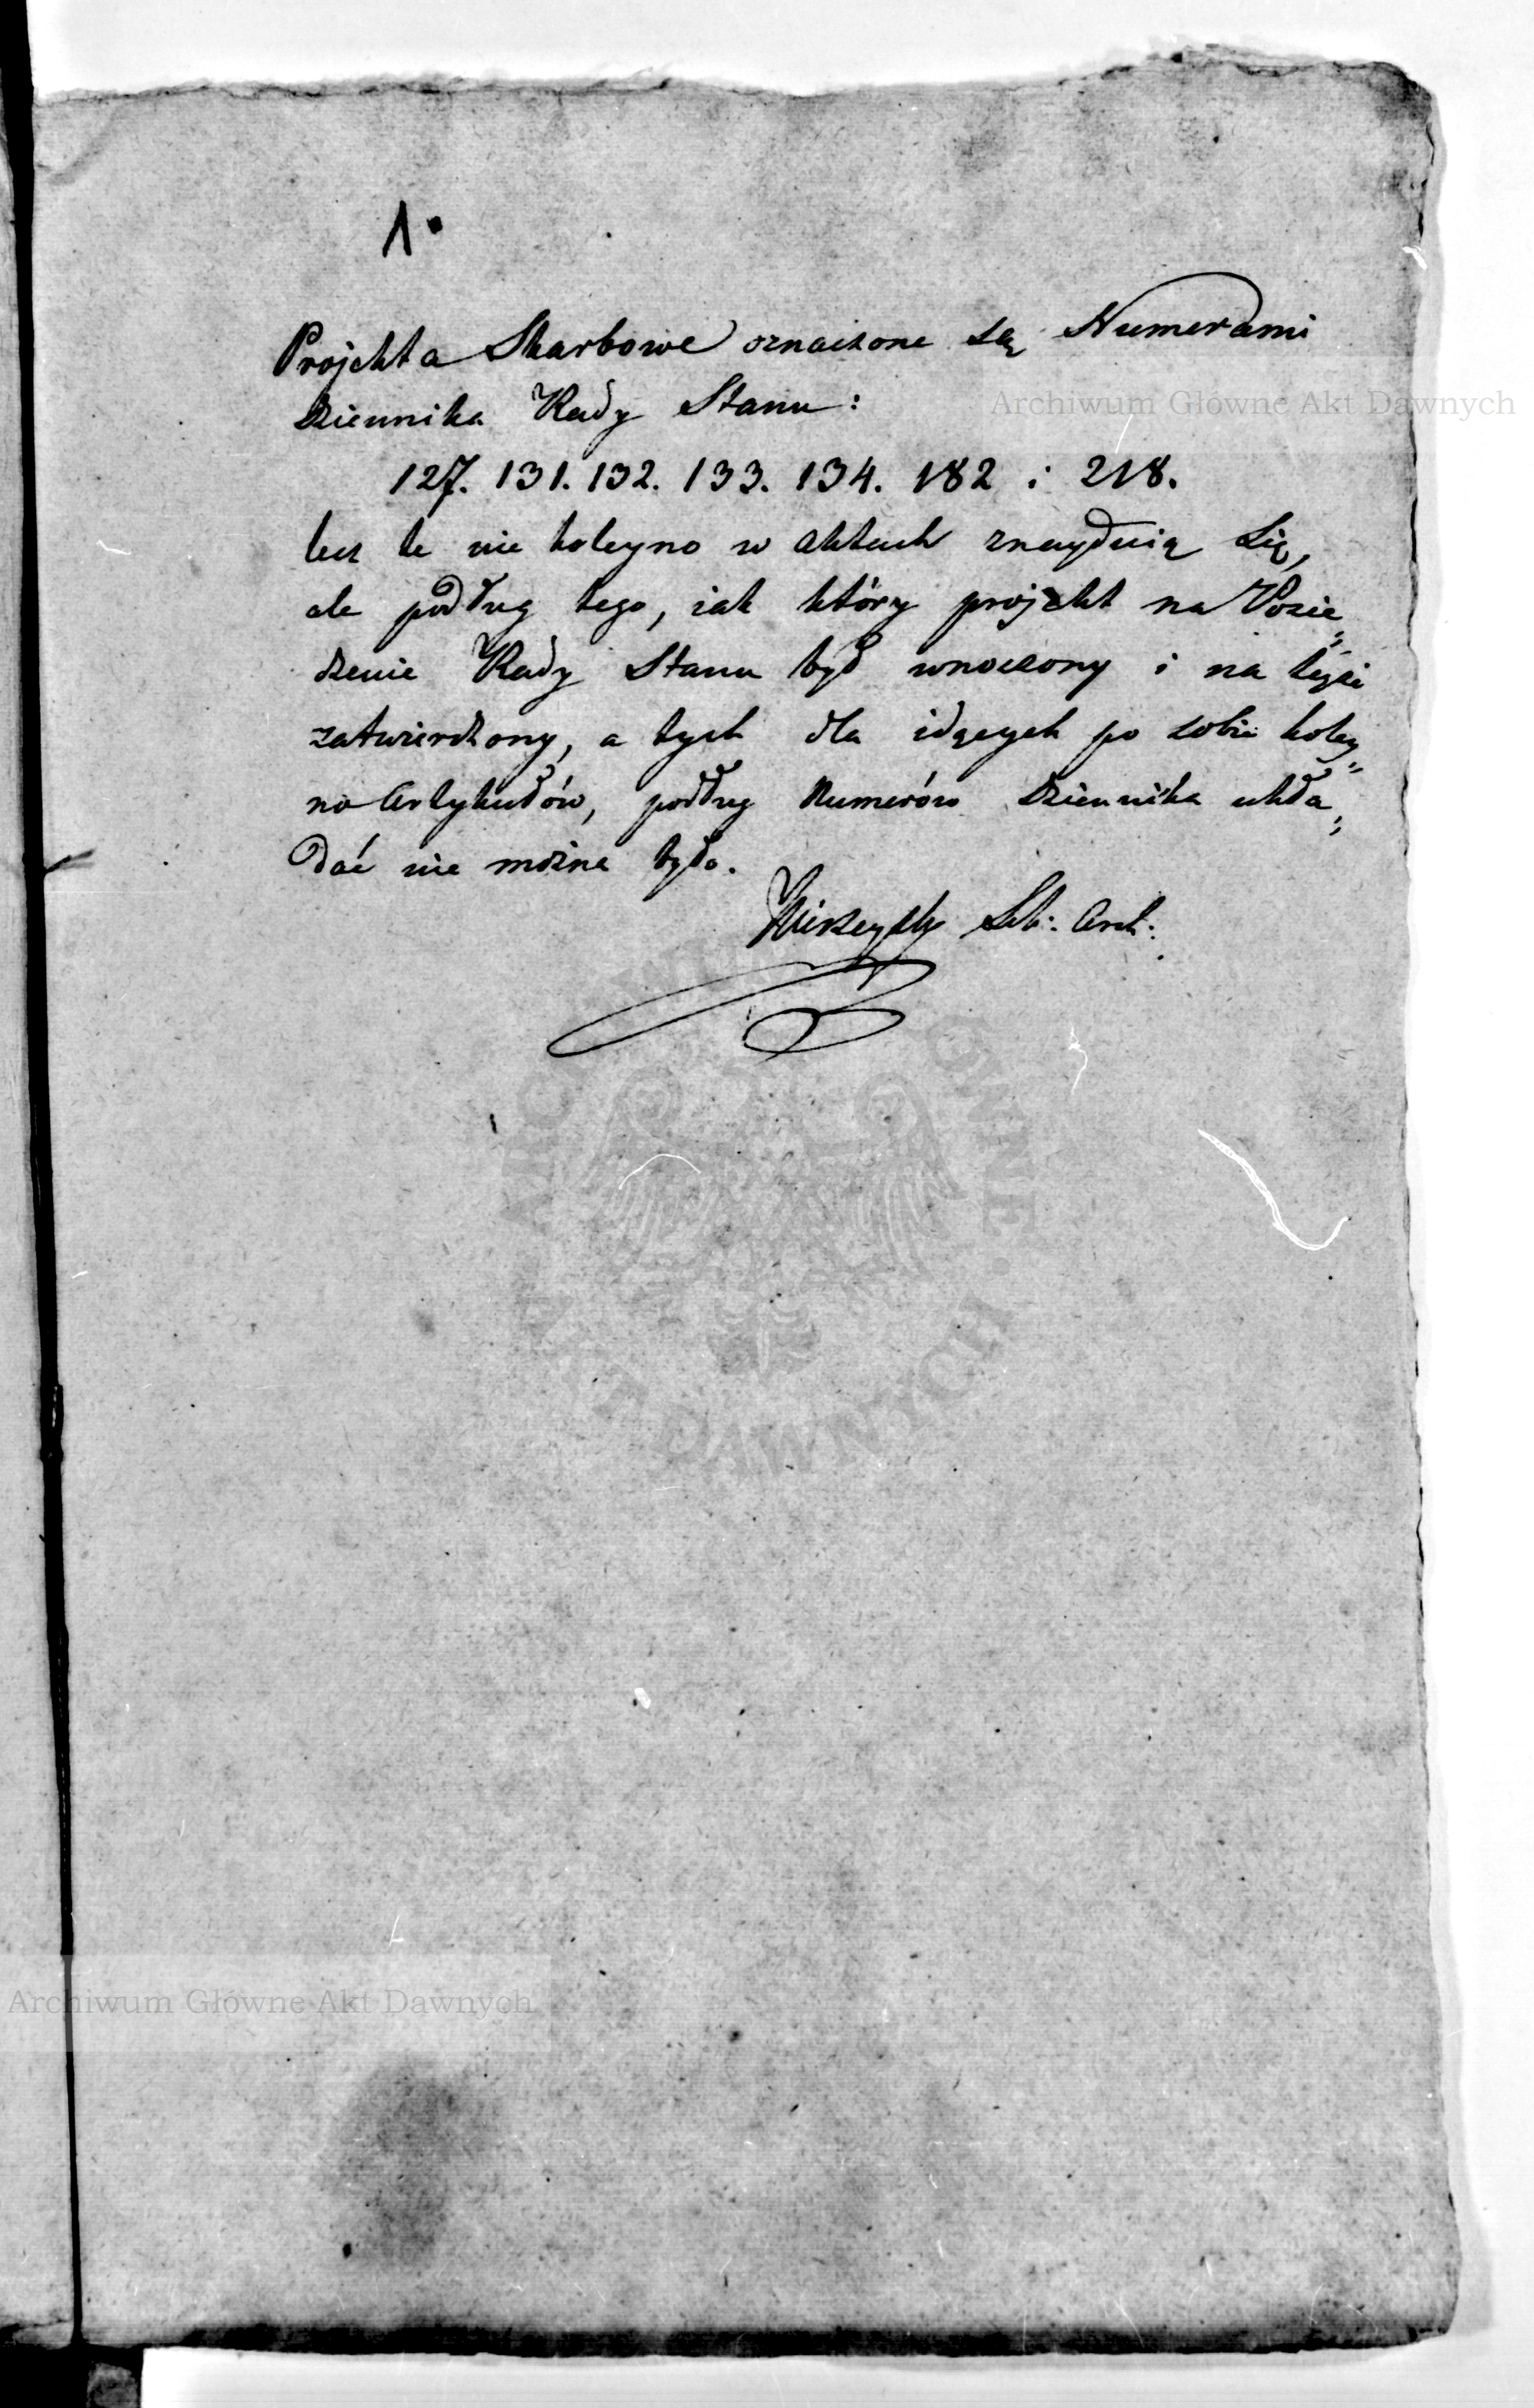 1.
Projekta Skarbowe oznaczone są Numerami
Dziennika Rady Stanu:
127. 131. 132. 133. 134. 182 i 218.
lecz te nie koleyno w aktach znayduią się,
ale podług tego, iak który projekt na Posie„
dzenie Rady Stanu był wnoszony i na teyże
zatwierdzony, a tych dla idących po sobie koley„
no Artykułów, podług Numerów Dziennika ukła„
dać nie można było.
Sek: Arch:
Archiwum Główne Akt Dawnych
Archiwum Główne Akt Dawnych
ARCHIWUM GŁÓWNE · AKT DAWNYCH ·